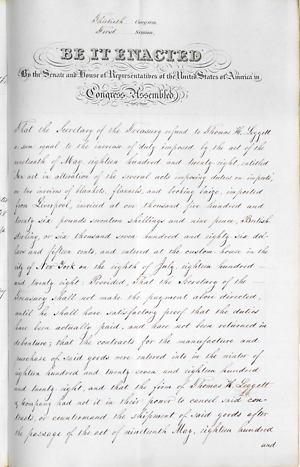 Thirtieth Congress,
First Session,
BE IT ENACTED
By the Senate and House of Representatives of the United States of America in
Congress Assembled,
That the Secretary of the Treasury refund to Thomas H. Leggett
a sum equal to the increase of duty imposed by the act of the
nineteenth of May, eighteen hundred and twenty-eight, entitled
An act in alteration of the several acts imposing duties on imports,
on two invoices of blankets, flannels, and bocking baize, imported
from Liverpool, invoiced at one thousand five hundred and
twenty six pounds seventeen shillings and nine pence, British
sterling, or six thousand seven hundred and eighty six dol-
lars and fifteen cents, and entered at the custom-house in the
city of New York on the eighth of July, eighteen hundred
and twenty eight: Provided, That the Secretary of the
Treasury shall not make the payment above directed,
until he shall have satisfactory proof that the duties
have been actually paid, and have not been returned in
debenture; that the contracts for the manufacture and
purchase of said goods were entered into in the winter of
eighteen hundred and twenty seven and eighteen hundred
and twenty eight, and that the firm of Thomas H. Leggett
& Company had not it in their power to cancel said con-
tracts, or countermand the shipment of said goods after
the passage of the act of nineteenth May, eighteen hundred
and